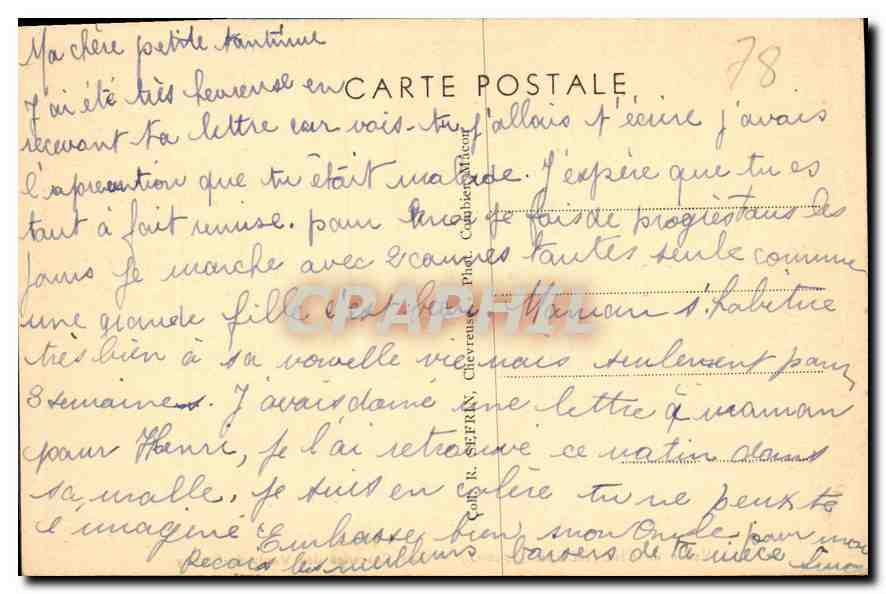 Ma chère petite tantinne
CARTE POSTALE
78
J'ai été très heureuse en
recevant ta lettre car vois-tu j'allais t'écrire j'avais
l'apreention que tu était malade. J'expère que tu es
tant à fait remise. pour je fais de progrès tous les
jours je marche avec 2 cannes toutes seule comme
une grande fille c'est beau. Maman s'habitue
très bien à sa nouvelle vie mais seulement pour
3 semaines. J'avais doné une lettre à maman
pour Henri, je l'ai retrouvé ce matin dans
sa malle. je suis en colère tu ne peux te
l'imaginé Embrasse bien mon Oncle pour moi
Reçois les meilleurs baisers de ta nièce
Coll. R. SEFRIN, Chevreuse Phot. Combier Mâcon
CPAPHIL